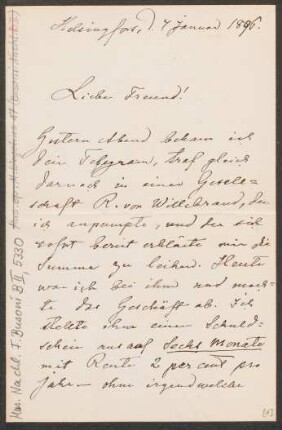 Helsingfors, d 7 Januar 1896.
Lieber Freund!
Gestern Abend bekam ich
Dein Telegramm, traf gleich
darnach in einer Gesell=
schaft R. von Willebrand, den
ich anpumpte, und der sich
sofort bereit erklärte mir die
Summe zu leihen. Heute
war ich bei ihm und mach=
te das Geschäft ab. Ich
stellte ihm einen Schuld=
schein aus auf Sechs Monate
mit Rente 2 per cent pro
Jahr – ohne irgendwelche
Mus. Nachl. F. Busoni B II, 5330
[1]